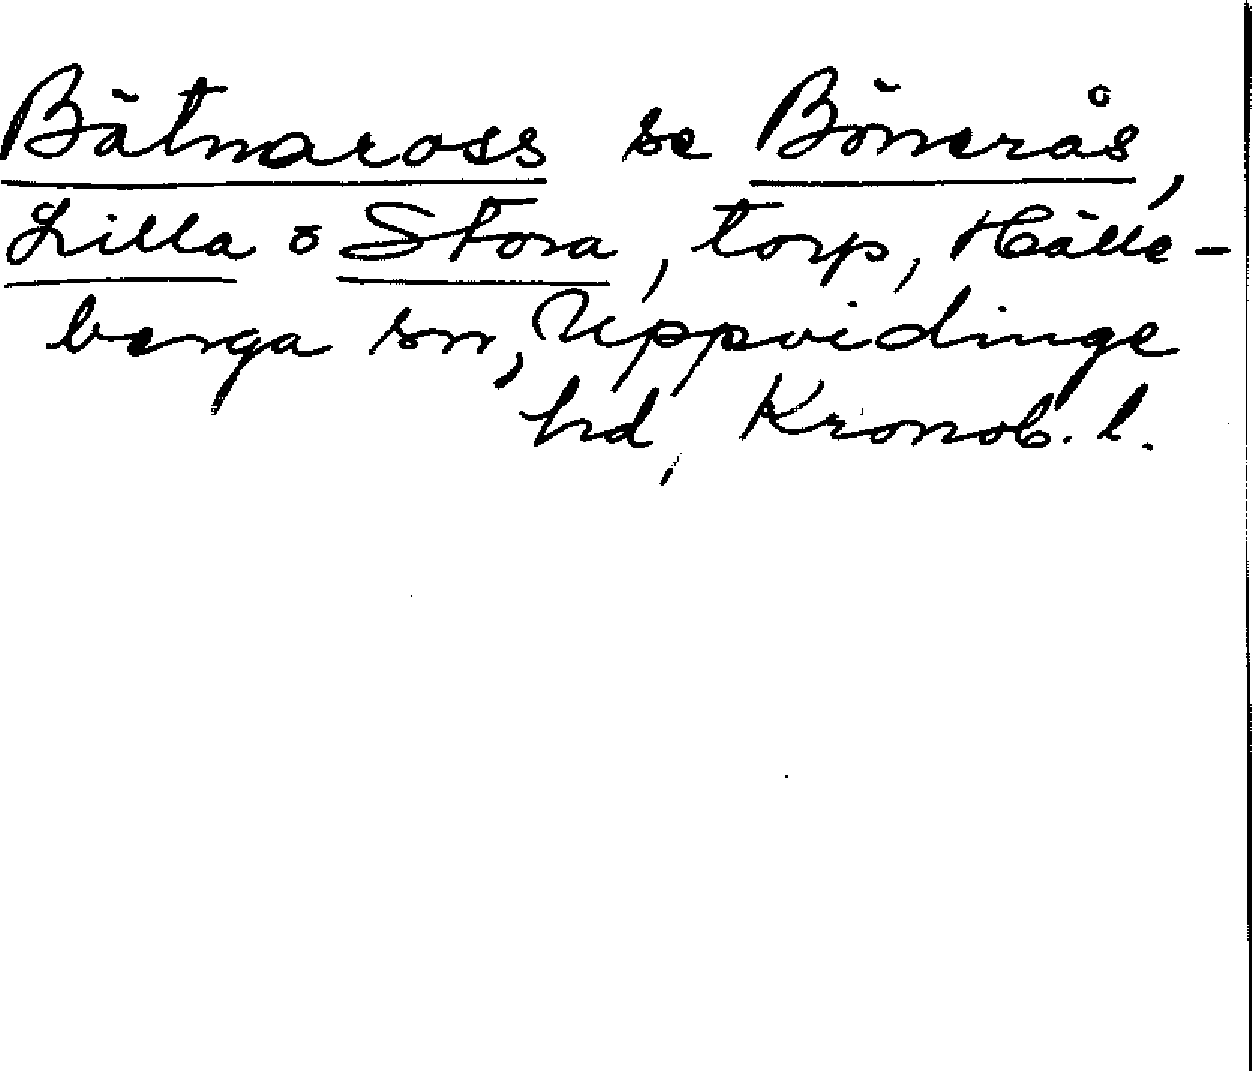 Bätnaross se Bönerås,
Lilla o Stora, torp, Hälle-
berga sn, Uppvidinge
hd, Kronob. l.